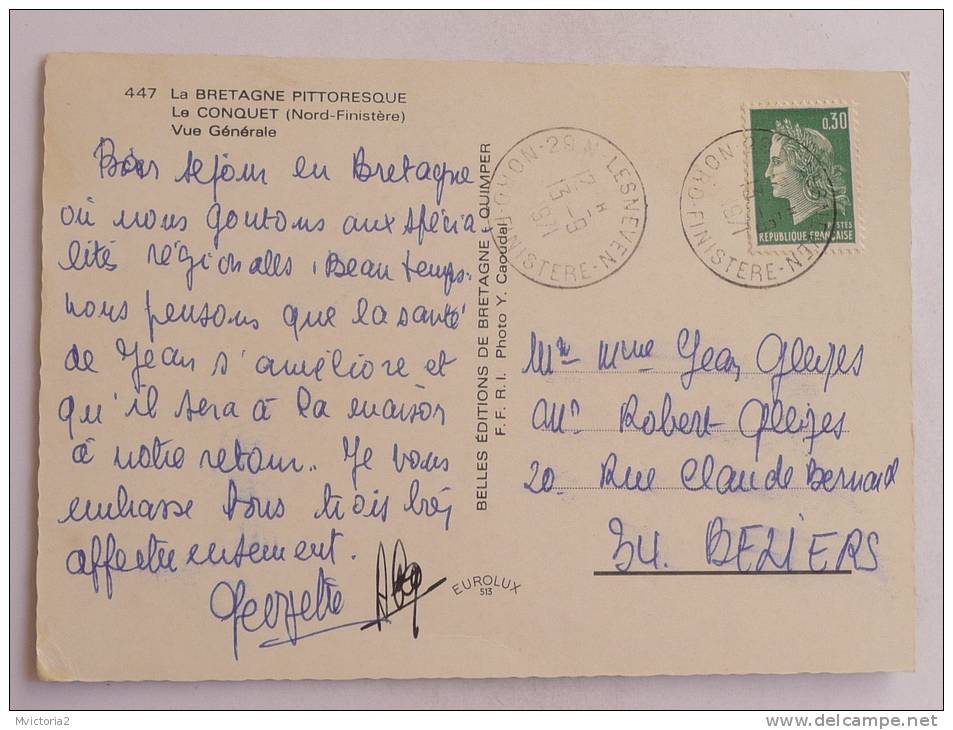 447 La BRETAGNE PITTORESQUE
Le CONQUET (Nord-Finistère)
Vue Générale
Bon séjour en Bretagne
où nous goutons aux spécia-
lités régionalles. Beau temps.
nous pensons que la santé
de Jean s'améliore et
qu'il sera à la maison
à notre retour.. Je vous
embrasse tous trois très
affectueusement.
Georgette
BELLES ÉDITIONS DE BRETAGNE - QUIMPER
F. F. R. I. Photo Y. Caoudal
EUROLUX
513
LESNEVEN
29.N
FINISTERE-N
12 H
13 -9
1971
LESNEVEN
FINISTERE-N
1971
0,30
POSTES
RÉPUBLIQUE FRANÇAISE
Mr Mme Jean Gleizes
Robert Gleizes
20 Rue Claude Bernard
34. BEZIERS
Mvictoria2
http://www.delcampe.net